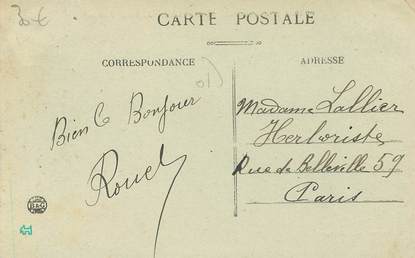 30 €
CARTE POSTALE
CORRESPONDANCE
ADRESSE
Bien le Bonjour
Rouel
Madame Lallier
Herboriste
Rue de Belleville 59
Paris